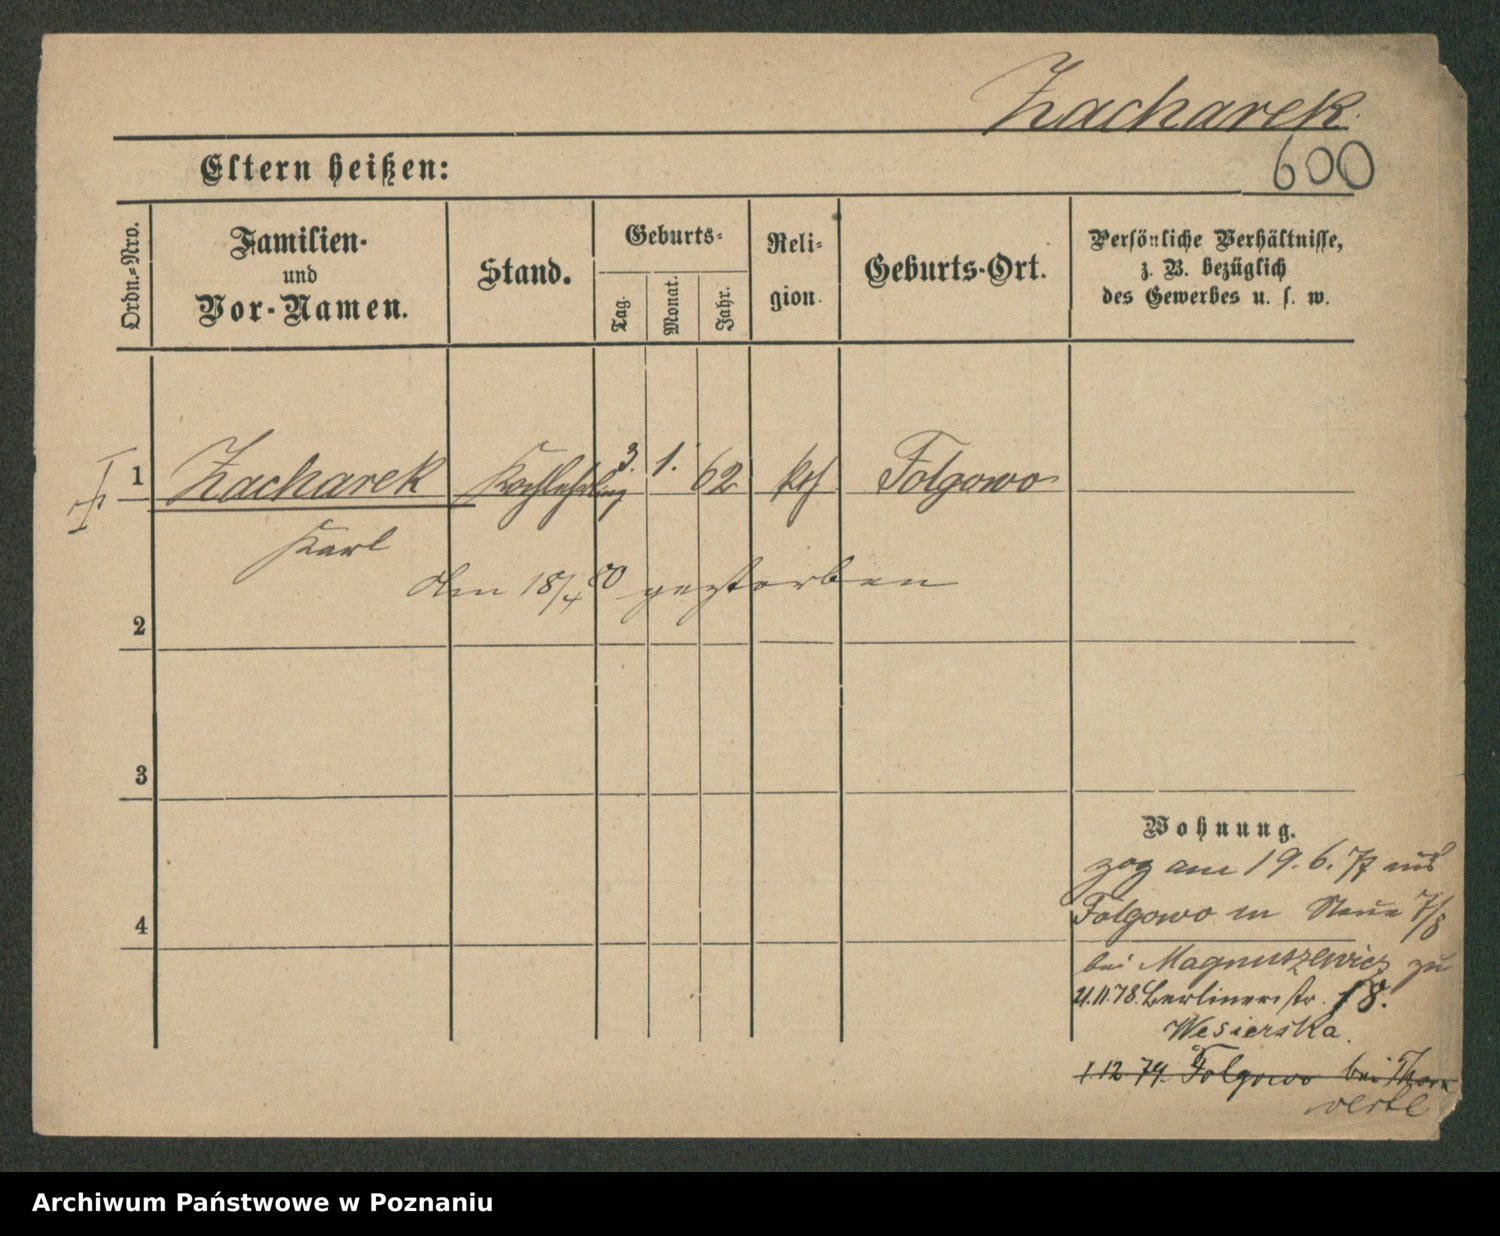 Zacharek.
600
Eltern heißen:
Ordn.-Nro.
Familien-
und
Vor-Namen.
Stand.
Geburts-
Tag.
Monat.
Jahr.
Reli-
gion.
Geburts-Ort.
Persönliche Verhältnisse,
z. B. bezüglich
des Gewerbes u. s. w.
1 Zacharek Kochlehrling 3. 1. 62 Folgowo
Karl
den 18/4 80 gestorben
2
3
Wohnung.
zog am 19. 6. 77 aus
Folgowo in Neue 7/8
4
bei Magnuszewicz zu
21.11.78. Berlinerstr. 18.
Wesierska.
1.12.79. Folgowo bei Thorn